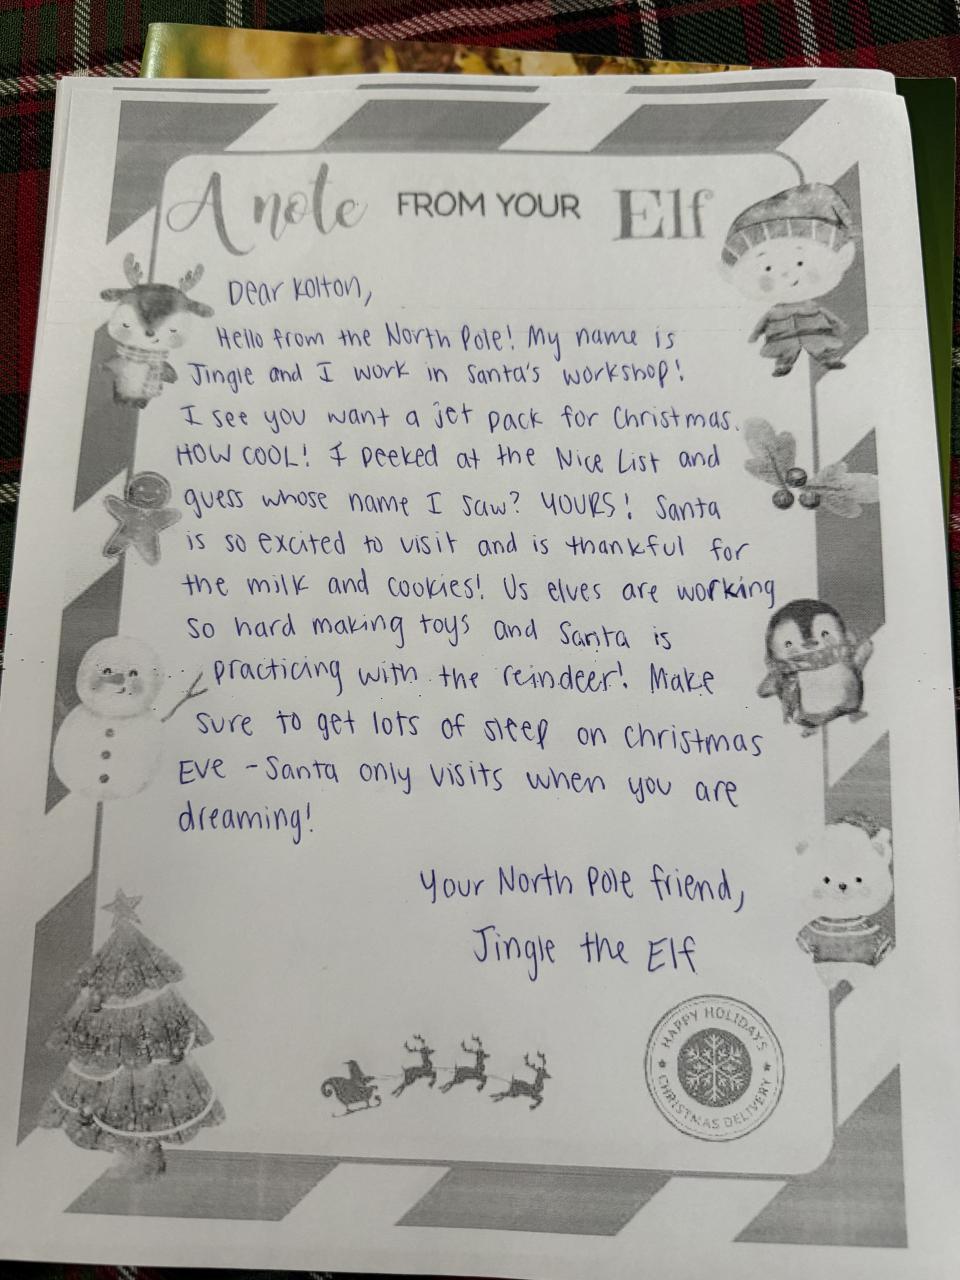 A note FROM YOUR Elf
Dear Kolton,
Hello from the North Pole! My name is
Jingle and I work in Santa's workshop!
I see you want a jet pack for Christmas.
HOW COOL! I peeked at the Nice List and
guess whose name I saw? YOURS! Santa
is so excited to visit and is thankful for
the milk and cookies! Us elves are working
so hard making toys and Santa is
practicing with the reindeer! Make
sure to get lots of sleep on Christmas
Eve - Santa only visits when you are
dreaming!
Your North Pole friend,
Jingle the Elf
HAPPY HOLIDAYS
CHRISTMAS DELIVERY